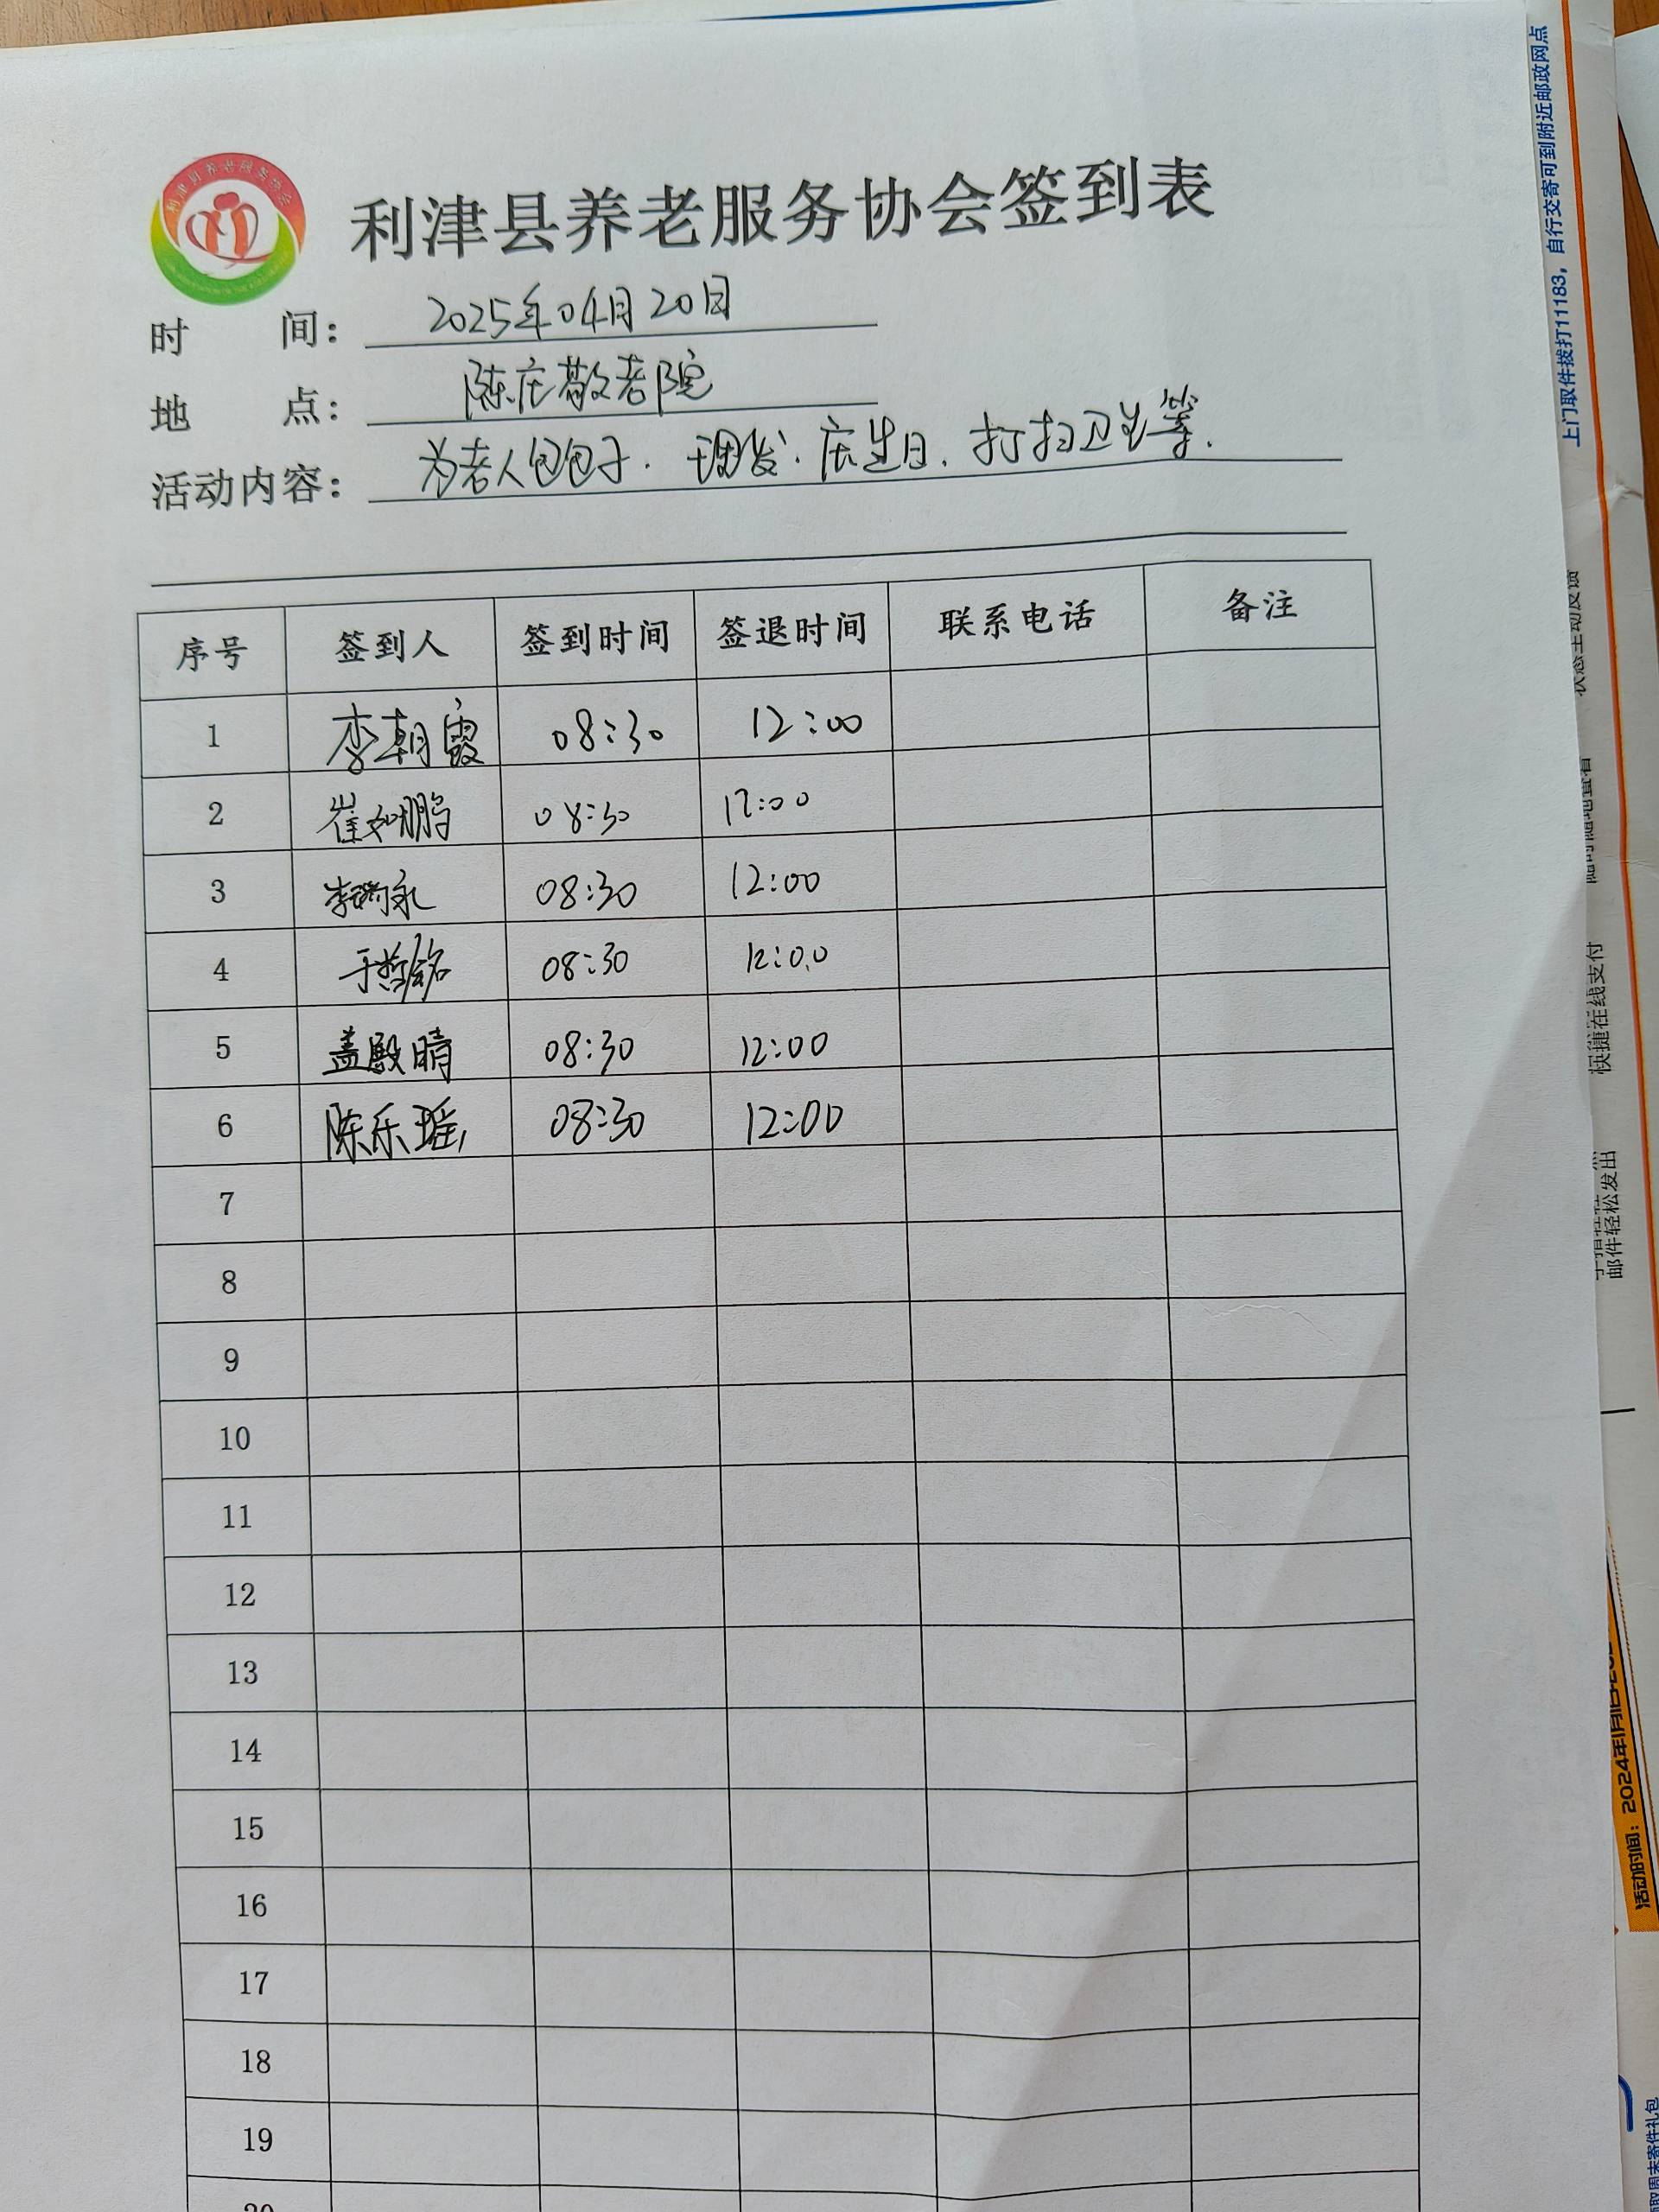 利津县养老服务协会
利津县养老服务协会签到表
时 间： 2025年04月20日
地 点： 陈庄敬老院
活动内容： 为老人包包子. 理发. 庆生日. 打扫卫生等.
序号 签到人 签到时间 签退时间 联系电话 备注
1 李朝霞 08:30 12:00
2 崔如鹏 08:30 12:00
3 李瑞永 08:30 12:00
4 于哲铭 08:30 12:00
5 盖殿晴 08:30 12:00
6 陈乐瑶 08:30 12:00
7
8
9
10
11
12
13
14
15
16
17
18
19
20
上门取件拨打11183，自行交寄可到附近邮政网点
快捷在线支付
邮件轻松发出
活动时间：2024年1月1日-202